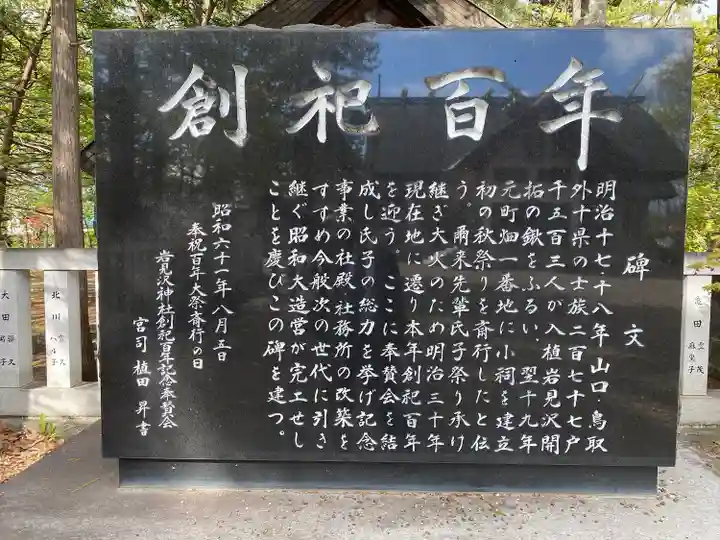 創祀百年
碑文
明治十七・十八年山口・鳥取
外十県の士族二百七十七戸
千五百三人が入植岩見沢開
拓の鍬をふるい、翌十九年
元町畑一番地に小祠を建立
初の秋祭りを斎行したと伝
う。爾来先輩氏子祭り承け
継ぎ大火のため明治三十年
現在地に遷り本年創祀百年
を迎う。ここに奉賛会を結
成し氏子の総力を挙げ記念
事業の社殿社務所の改築を
すすめ今般次の世代に引き
継ぐ昭和大造営が完工せし
ことを慶びこの碑を建つ。
昭和六十一年八月五日
奉祝百年大祭斎行の日
岩見沢神社創祀百年記念奉賛会
宮司 植田 昇書
大田
北川
ハル子
亀田
麻生子